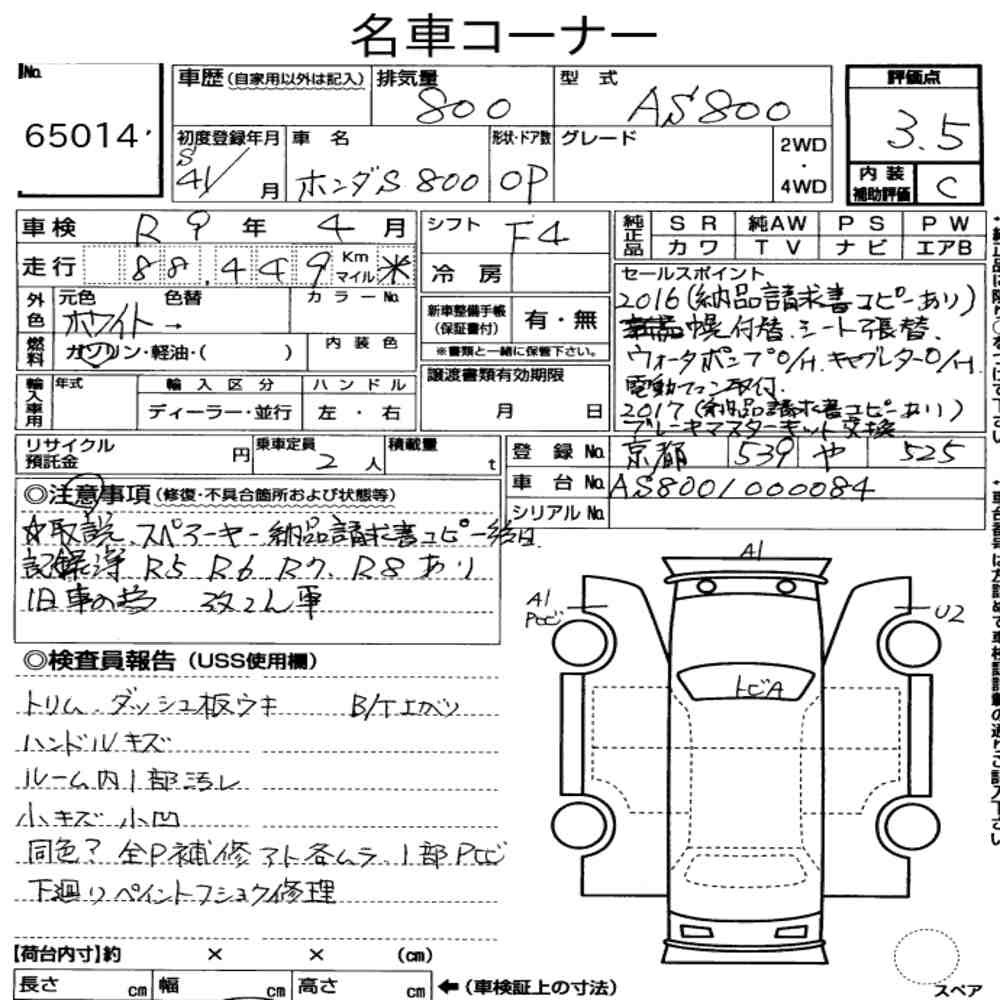 名車コーナー
No. 65014
車歴(自家用以外は記入) 排気量 800 型式 AS800
評価点 3.5
初度登録年月 S41/ 月 車名 ホンダS800 形状・ドア数 OP グレード 2WD・4WD
内装補助評価 C
車検 R9年4月 シフト F4
純正品 SR 純AW PS PW
カワ TV ナビ エアB
走行 88,449 Km マイル ※ 冷房
外色 元色 ホワイト→ 色替 カラーNo.
燃料 ガソリン・軽油・( ) 内装色
新車整備手帳(保証書付) 有・無
※書類と一緒に保管下さい。
セールスポイント
2016(納品請求書コピーあり)
幌付替.シート張替.
ウォータポンプO/H.キャブレターO/H.
電動ファン取付.
2017(納品請求書コピーあり)
ブレーキマスターキット交換
輸入車用 年式 輸入区分 ハンドル
ディーラー・並行 左・右
譲渡書類有効期限
月 日
リサイクル預託金 円 乗車定員 2人 積載量 t
登録No. 京都 539 や 525
車台No. AS8001000084
シリアルNo.
◎注意事項(修復・不具合箇所および状態等)
☆取説.スペアーキー納品請求書コピー後日
記録簿 R5 R6 R7. R8あり
旧車の為
◎検査員報告(USS使用欄)
トリム.ダッシュ板ウキ B/Tエカベリ
ハンドルキズ
ルーム内1部汚レ
小キズ小凹
同色? 全P補修アト各ムラ.1部Pセビ
下廻りペイントフショク修理
A1
A1
U2
トビA
【荷台内寸】約 × × (cm)
長さ cm 幅 cm 高さ cm ←(車検証上の寸法)
スペア